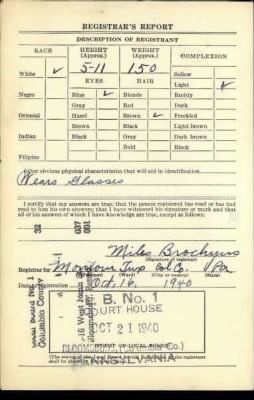 REGISTRAR'S REPORT
DESCRIPTION OF REGISTRANT
RACE HEIGHT (Approx.) WEIGHT (Approx.) COMPLEXION
White ✓ 5-11 150 Sallow
EYES HAIR Light ✓
Negro Blue ✓ Blonde Ruddy
Gray Red Dark
Oriental Hazel Brown ✓ Freckled
Brown Black Light brown
Indian Black Gray Dark brown
Bald Black
Filipino
Other obvious physical characteristics that will aid in identification
Wears Glasses
I certify that my answers are true; that the person registered has read or has had
read to him his own answers; that I have witnessed his signature or mark and that
all of his answers of which I have knowledge are true, except as follows:
32 037 001
Miles
(Signature of registrar)
Registrar for Montour Twp Col Co. Pa
(Ward) (City or county) (State)
Date of registration Oct. 16, 1940
Columbia County
16 West
B. No. 1
COURT HOUSE
OCT 21 1940
BLOOMSBURG, (Columbia Co.)
PENNSYLVANIA